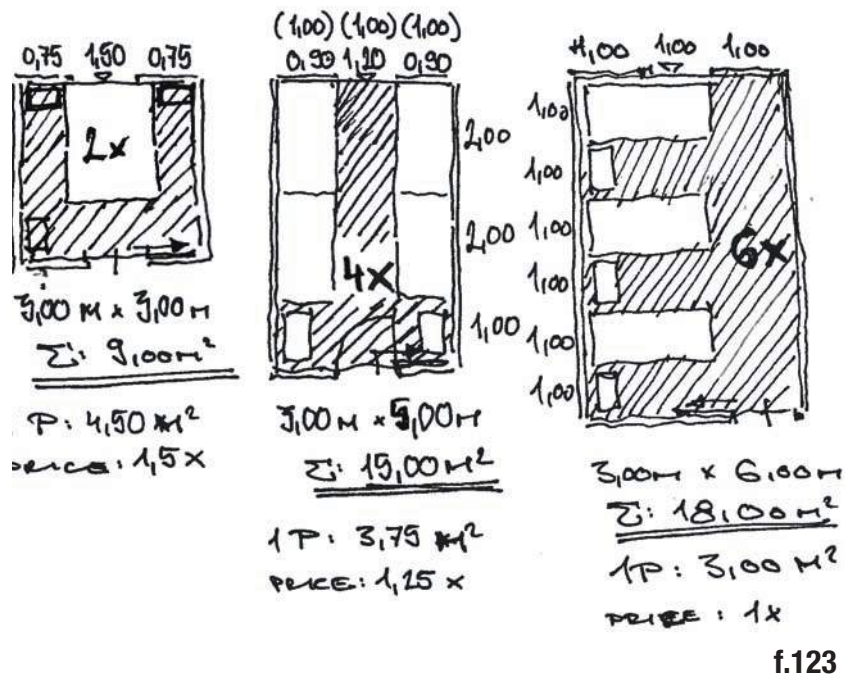 0,75 1,50 0,75
2x
3,00 M x 3,00 M
Σ: 9,00 M²
P: 4,50 M²
PRICE: 1,5 X
(1,00) (1,00) (1,00)
0,90 1,20 0,90
2,00
2,00
4x
1,00
3,00 M x 5,00 M
Σ: 15,00 M²
1P: 3,75 M²
PRICE: 1,25 X
1,00 1,00 1,00
1,00
1,00
1,00
6x
1,00
1,00
1,00
3,00 M x 6,00 M
Σ: 18,00 M²
1P: 3,00 M²
PRICE: 1X
f.123